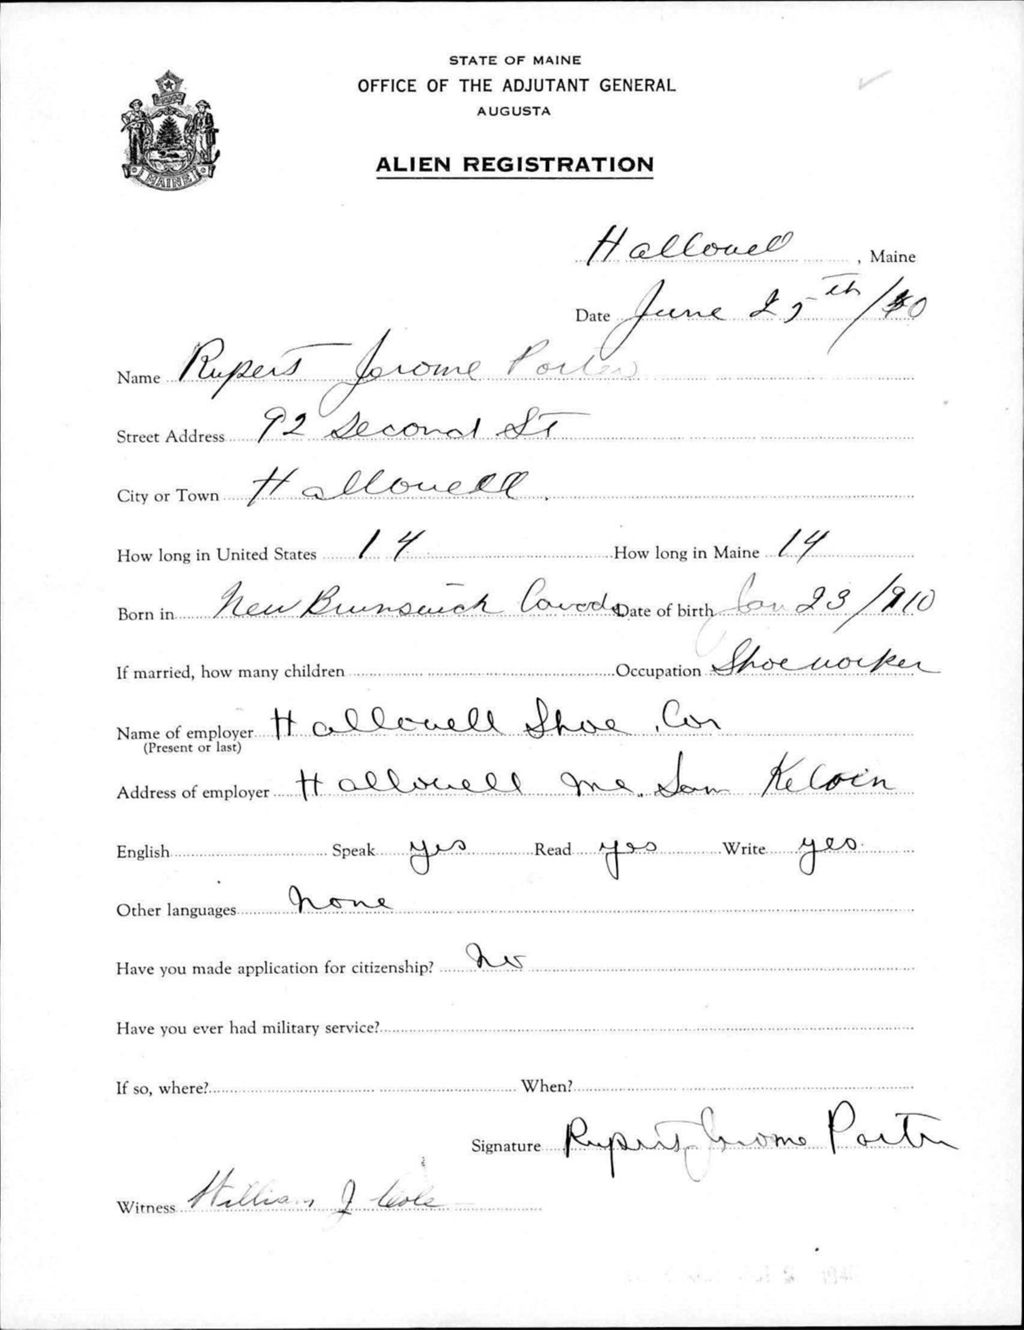 STATE OF MAINE
OFFICE OF THE ADJUTANT GENERAL
AUGUSTA
ALIEN REGISTRATION
MAINE
Hallowell, Maine
Date June 25th/40
Name Rupert Jerome Porter
Street Address 92 Second St
City or Town Hallowell.
How long in United States 14 How long in Maine 14
Born in New Brunswick Canada Date of birth Jan 23/910
If married, how many children Occupation Shoeworker
Name of employer Hallowell Shoe Con
(Present or last)
Address of employer Hallowell Me. Sam
English Speak yes Read yes Write yes
Other languages None
Have you made application for citizenship? No
Have you ever had military service?
If so, where? When?
Signature Rupert Jerome Porter
Witness William J Cole